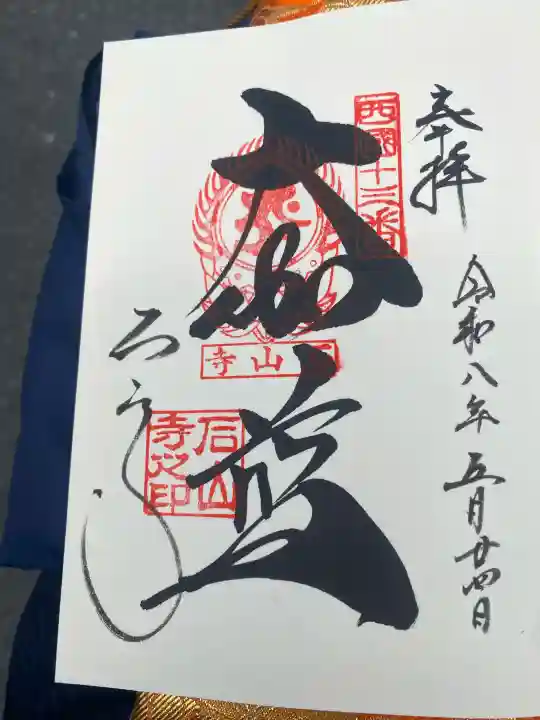 奉拝
令和八年五月廿四日
西國十三番
大伽藍
石山寺
石山寺之印
石山寺